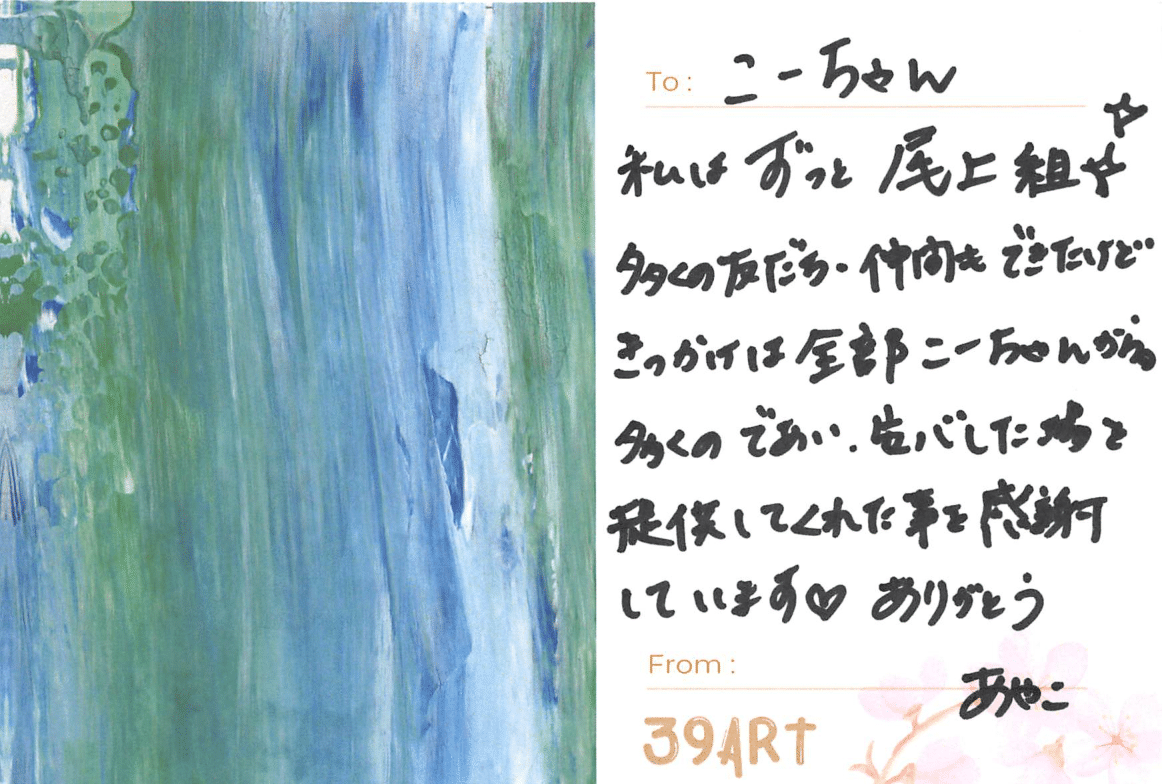 To : こーちゃん
私は ずっと 尾上組
多くの友だち・仲間も できたけど
きっかけは 全部 こーちゃんから
多くの であい、 した場を
提供してくれた事を感謝
しています♡ ありがとう
From :
あやこ
39ART